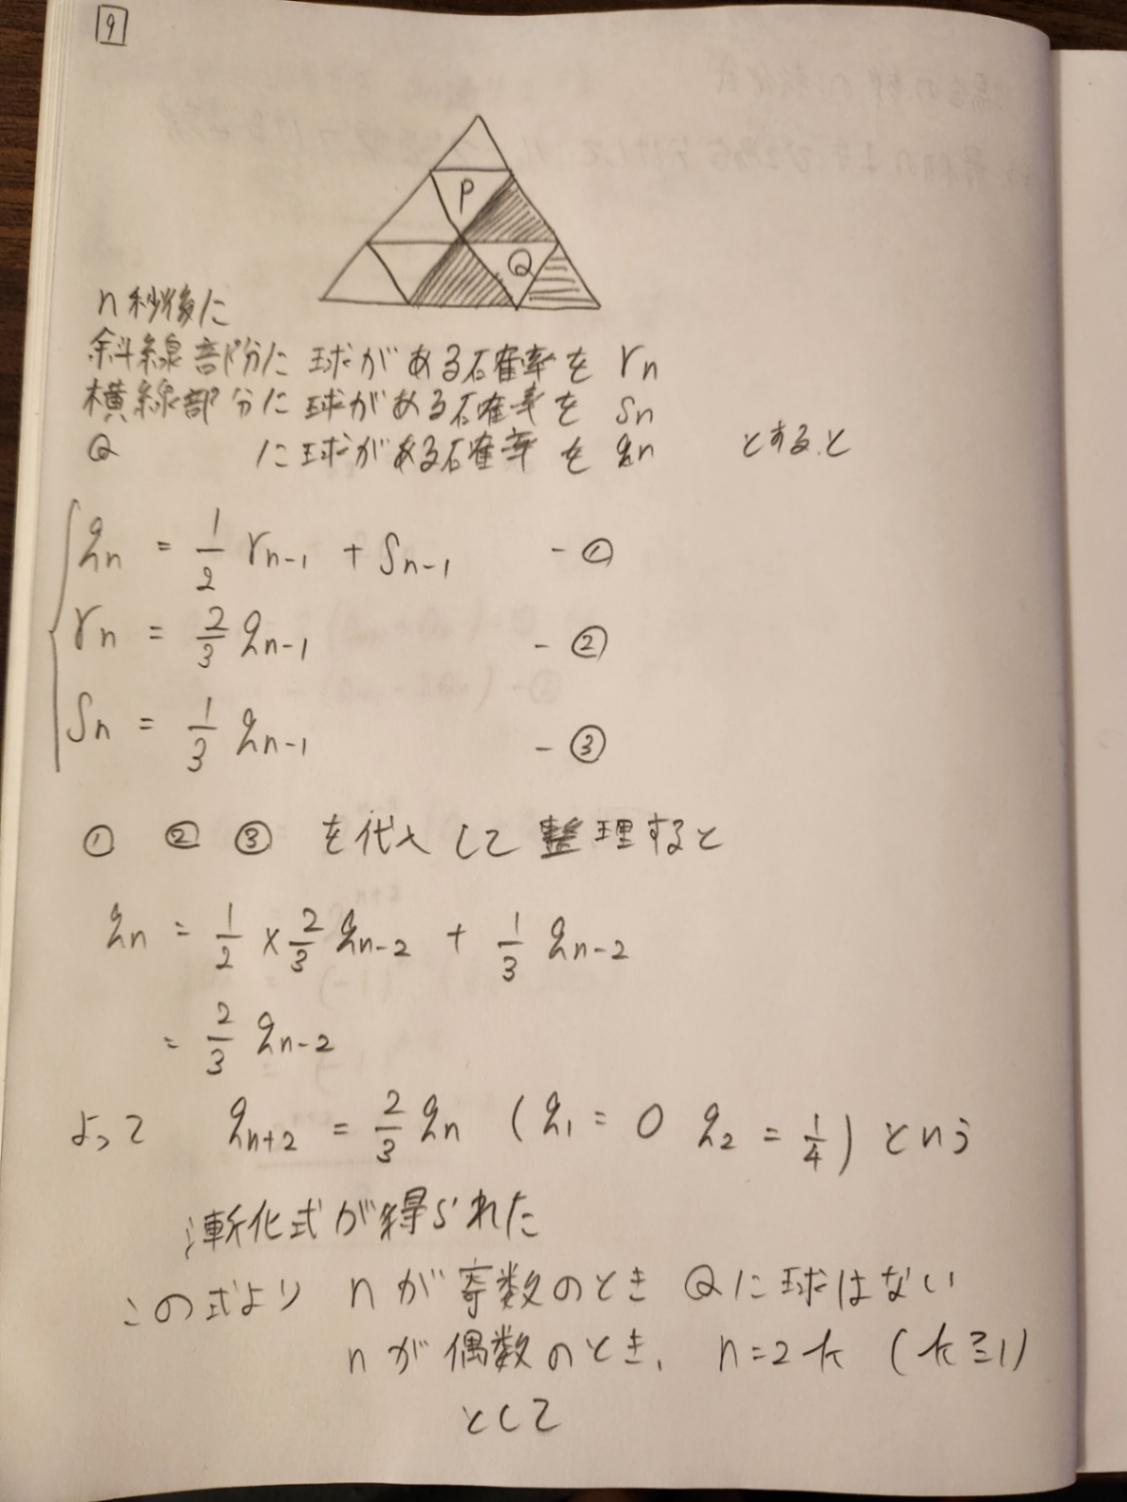 9
P
Q
n秒後に
斜線部分に球がある確率を rn
横線部分に球がある確率を Sn
Q に球がある確率を qn とすると
qn = 1/2 rn-1 + Sn-1 - ①
rn = 2/3 qn-1 - ②
Sn = 1/3 qn-1 - ③
① ② ③ を代入して整理すると
qn = 1/2 × 2/3 qn-2 + 1/3 qn-2
= 2/3 qn-2
よって qn+2 = 2/3 qn (q1 = 0 q2 = 1/4) という
漸化式が得られた
この式より nが奇数のとき Qに球はない
nが偶数のとき、 n=2k (k≧1)
として